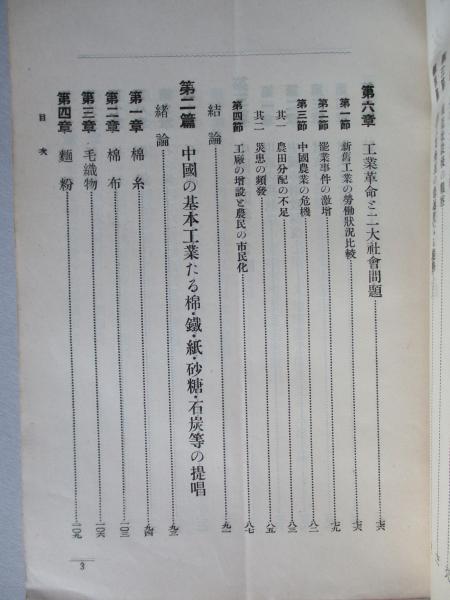 第六章 工業革命と二大社會問題 七六
第一節 新舊工業の勞働狀況比較 七六
第二節 罷業事件の激增 七九
第三節 中國農業の危機 八二
其一 農田分配の不足 八三
其二 災患の頻發 八五
第四節 工廠の增設と農民の市民化 八七
結論 九一
第二篇 中國の基本工業たる棉・鐵・紙・砂糖・石炭等の提唱
緖論 九三
第一章 棉糸 九四
第二章 棉布 一〇三
第三章 毛織物 一〇六
第四章 麵粉 一〇九
目次
3